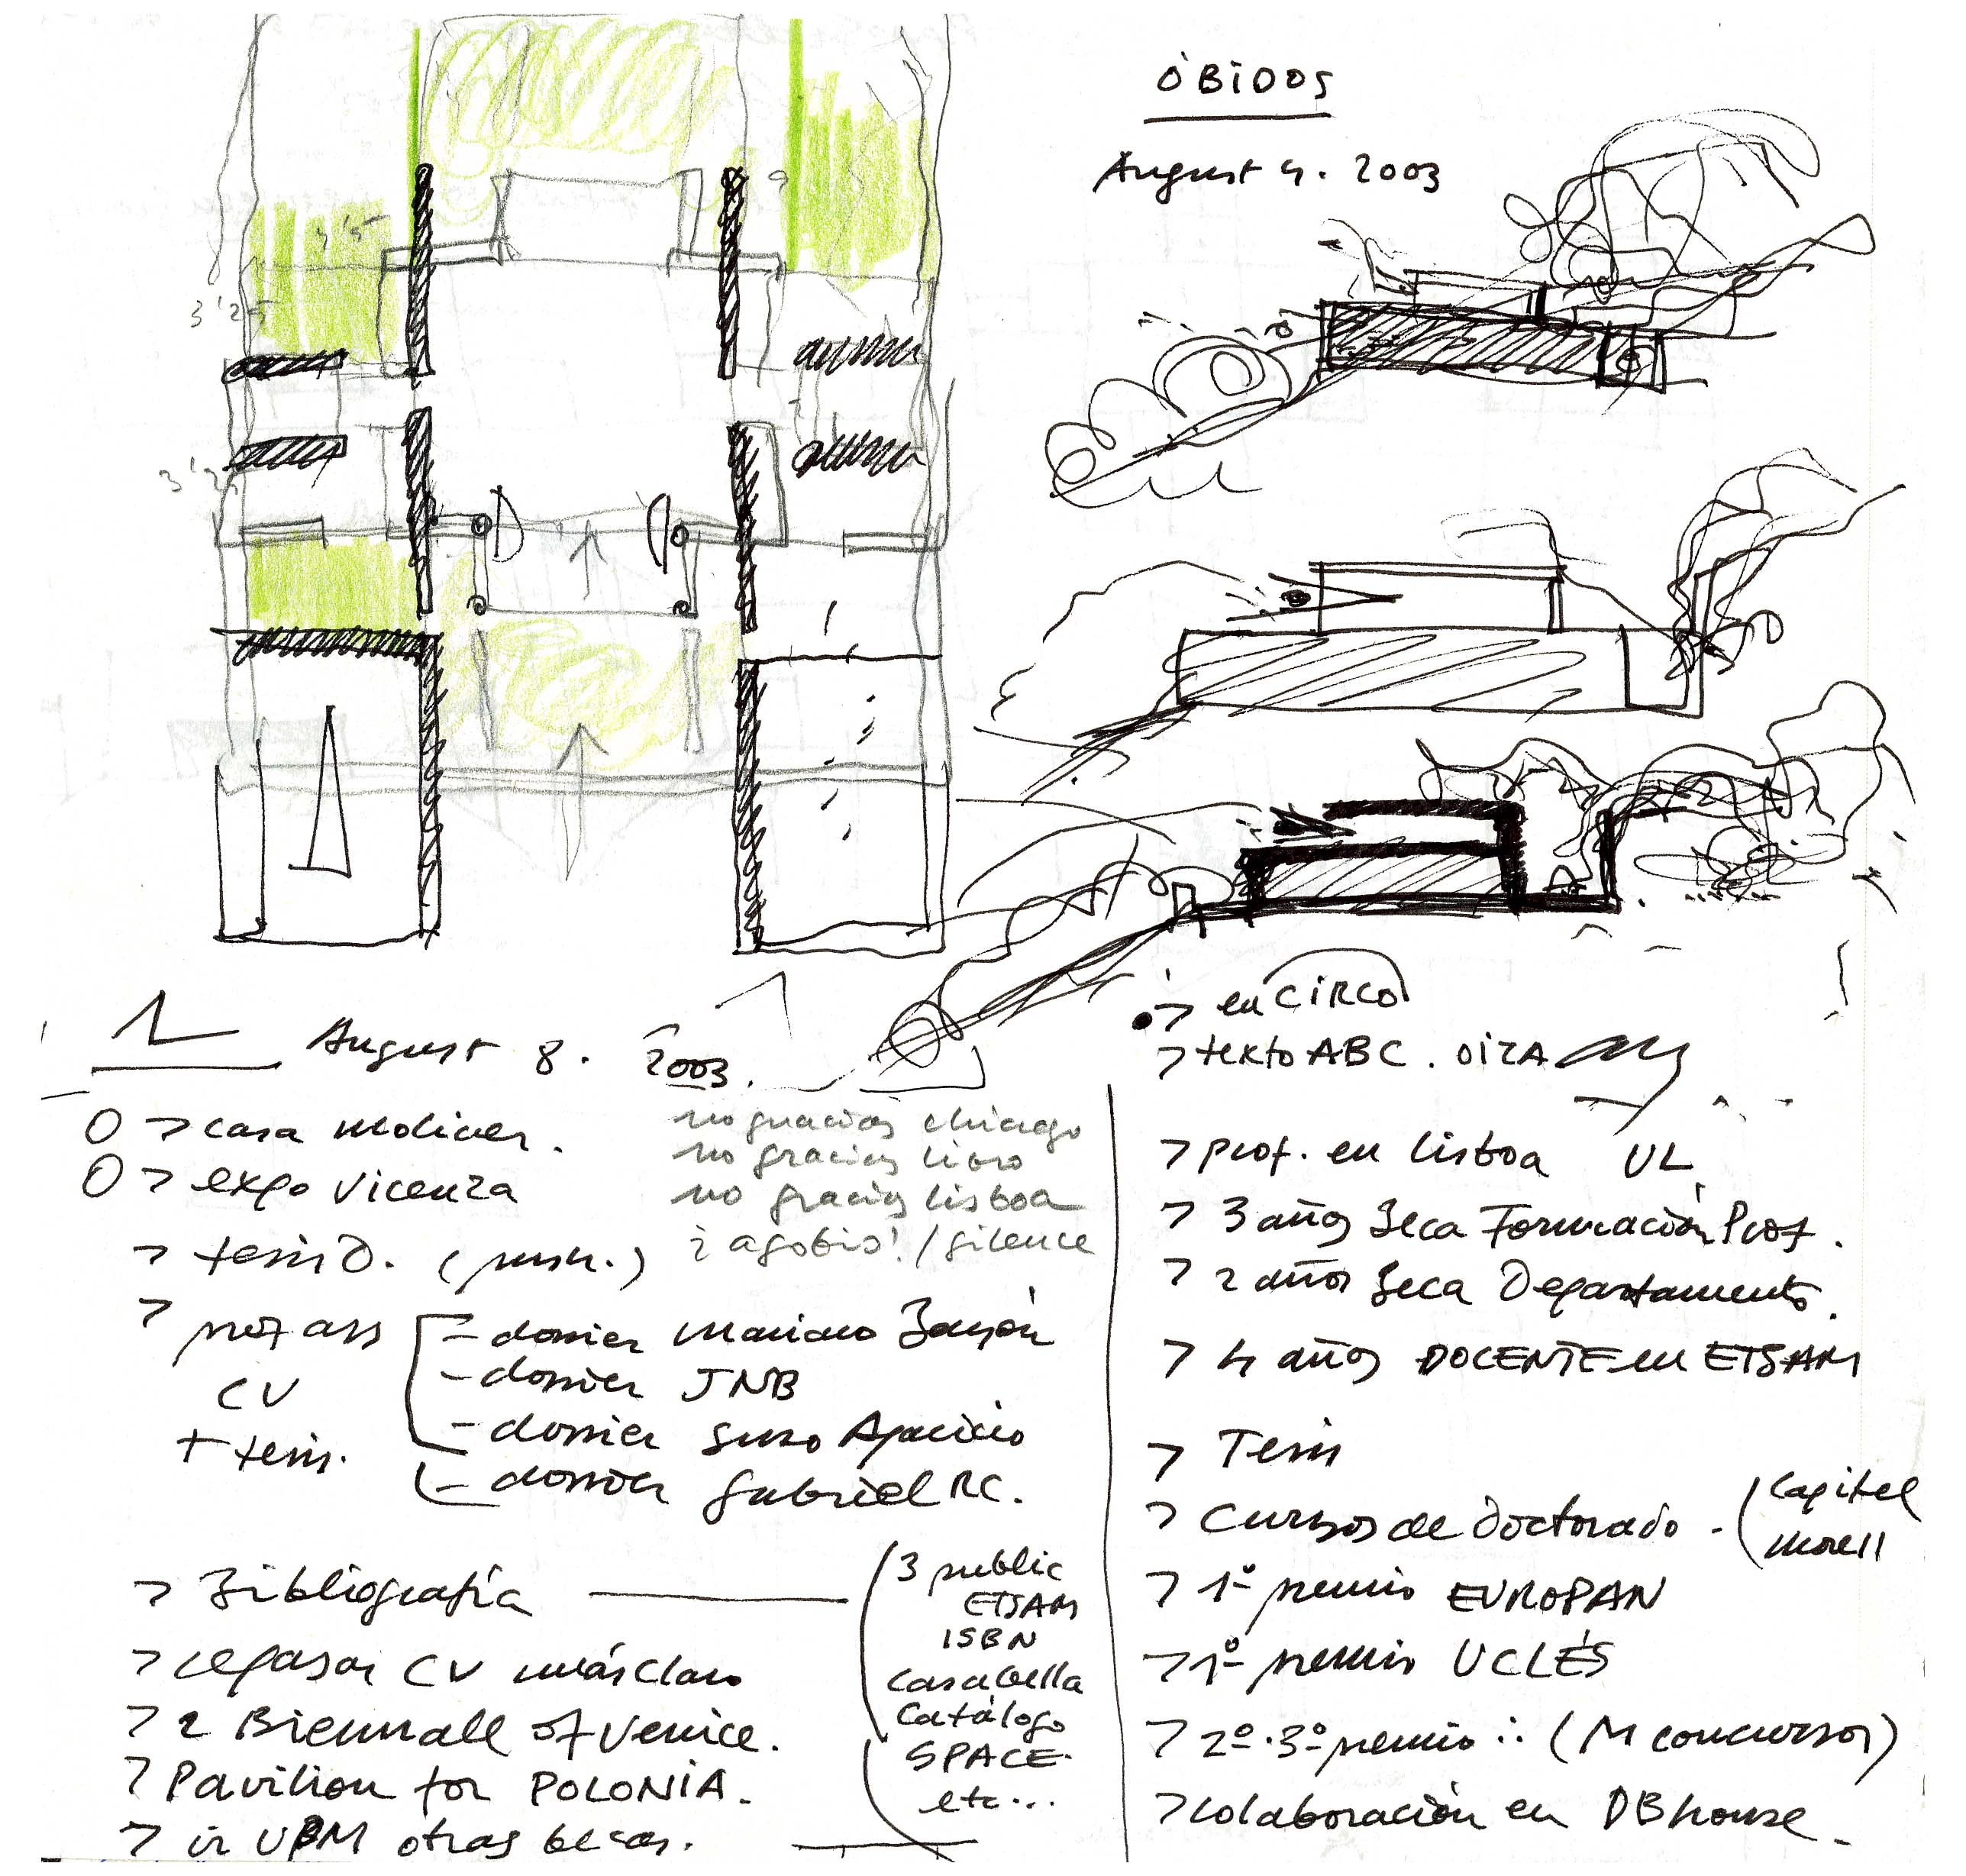 ÓBIDOS
August 4. 2003
3'5
3'25
3'25
August 8. 2003.
O > casa moliner.
O > expo Vicenza
no gracias chicago
no gracias libro
no gracias lisboa
¡ agobio! / silence
> tesis D.
> prof ass
CV
+ tesis.
- dossier Mariano Bayón
- dossier JNB
- dossier Suso Aparicio
- dossier Gabriel RC.
> Bibliografía
3 public
ETSAM
ISBN
Casabella
Catálogo
SPACE
etc...
> repasar CV más claro
> 2 Biennall of Venice.
> Pavilion for POLONIA.
> ir UPM otras becas.
> en CIRCO
> texto ABC. OIZA
> prof. en lisboa UL
> 3 años Beca Formación Prof.
> 2 años Beca Departamento.
> 4 años DOCENTE en ETSAM
> Tesis
> Cursos de Doctorado - ( Capitel
Morell
> 1º premio EUROPAN
> 1º premio UCLÉS
> 2º·3º premio :. (M concursos)
> colaboración en DB house.